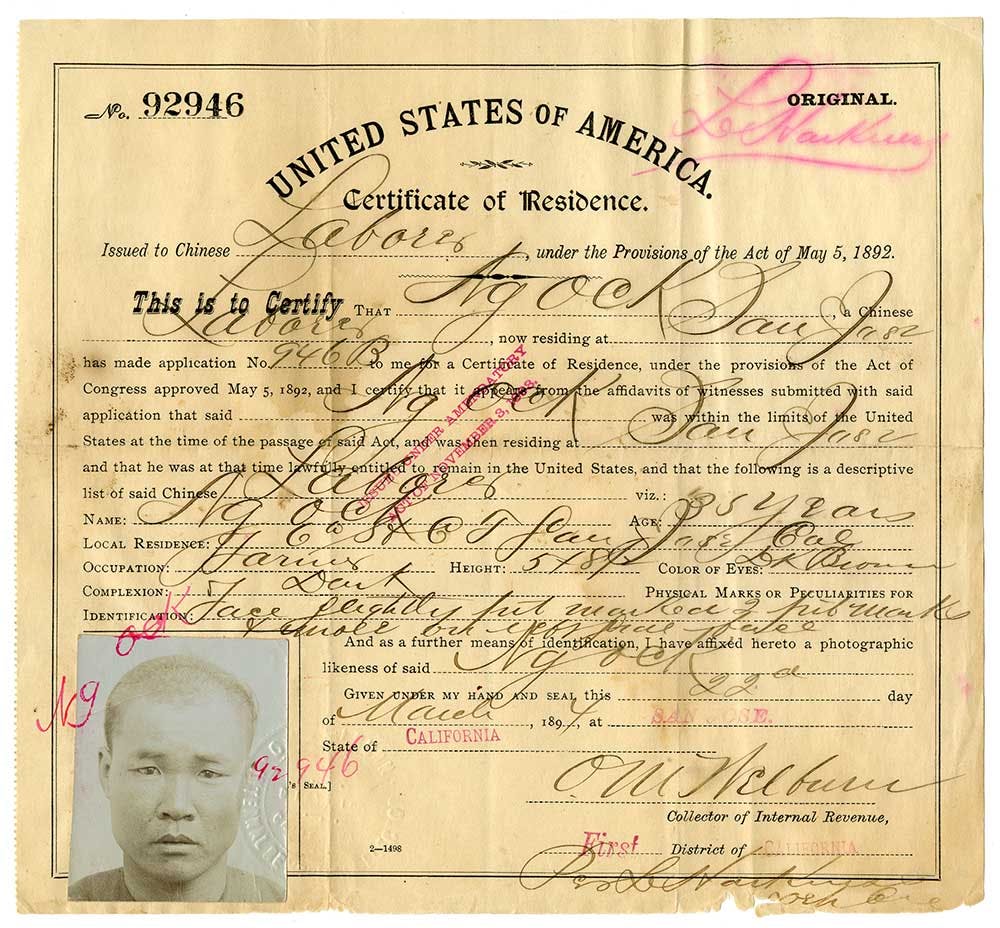 No. 92946
ORIGINAL.
L. Harkness
UNITED STATES OF AMERICA.
Certificate of Residence.
Issued to Chinese Laborer, under the Provisions of the Act of May 5, 1892.
This is to Certify THAT Ng Ock, a Chinese
Laborer, now residing at San Jose
has made application No. 946B to me for a Certificate of Residence, under the provisions of the Act of
Congress approved May 5, 1892, and I certify that it appears from the affidavits of witnesses submitted with said
application that said Ng Ock was within the limits of the United
States at the time of the passage of said Act, and was then residing at San Jose
and that he was at that time lawfully entitled to remain in the United States, and that the following is a descriptive
list of said Chinese Laborer viz.:
ISSUED UNDER AMENDATORY
ACT OF NOVEMBER 3, 1893.
NAME: Ng Ock AGE: 35 Years
LOCAL RESIDENCE: San Jose Cal
OCCUPATION: Farmer HEIGHT: COLOR OF EYES: Dk Brown
COMPLEXION: Dark PHYSICAL MARKS OR PECULIARITIES FOR
IDENTIFICATION: Face slightly pit marked 2 pit marks
& mole on face
And as a further means of identification, I have affixed hereto a photographic
likeness of said Ng Ock
GIVEN UNDER MY HAND AND SEAL this 22d day
of March, 1894, at SAN JOSE.
State of CALIFORNIA
Ng Ock
92946
['S SEAL.]
O M Welburn
Collector of Internal Revenue,
First District of CALIFORNIA
2—1498
Per L Harkness